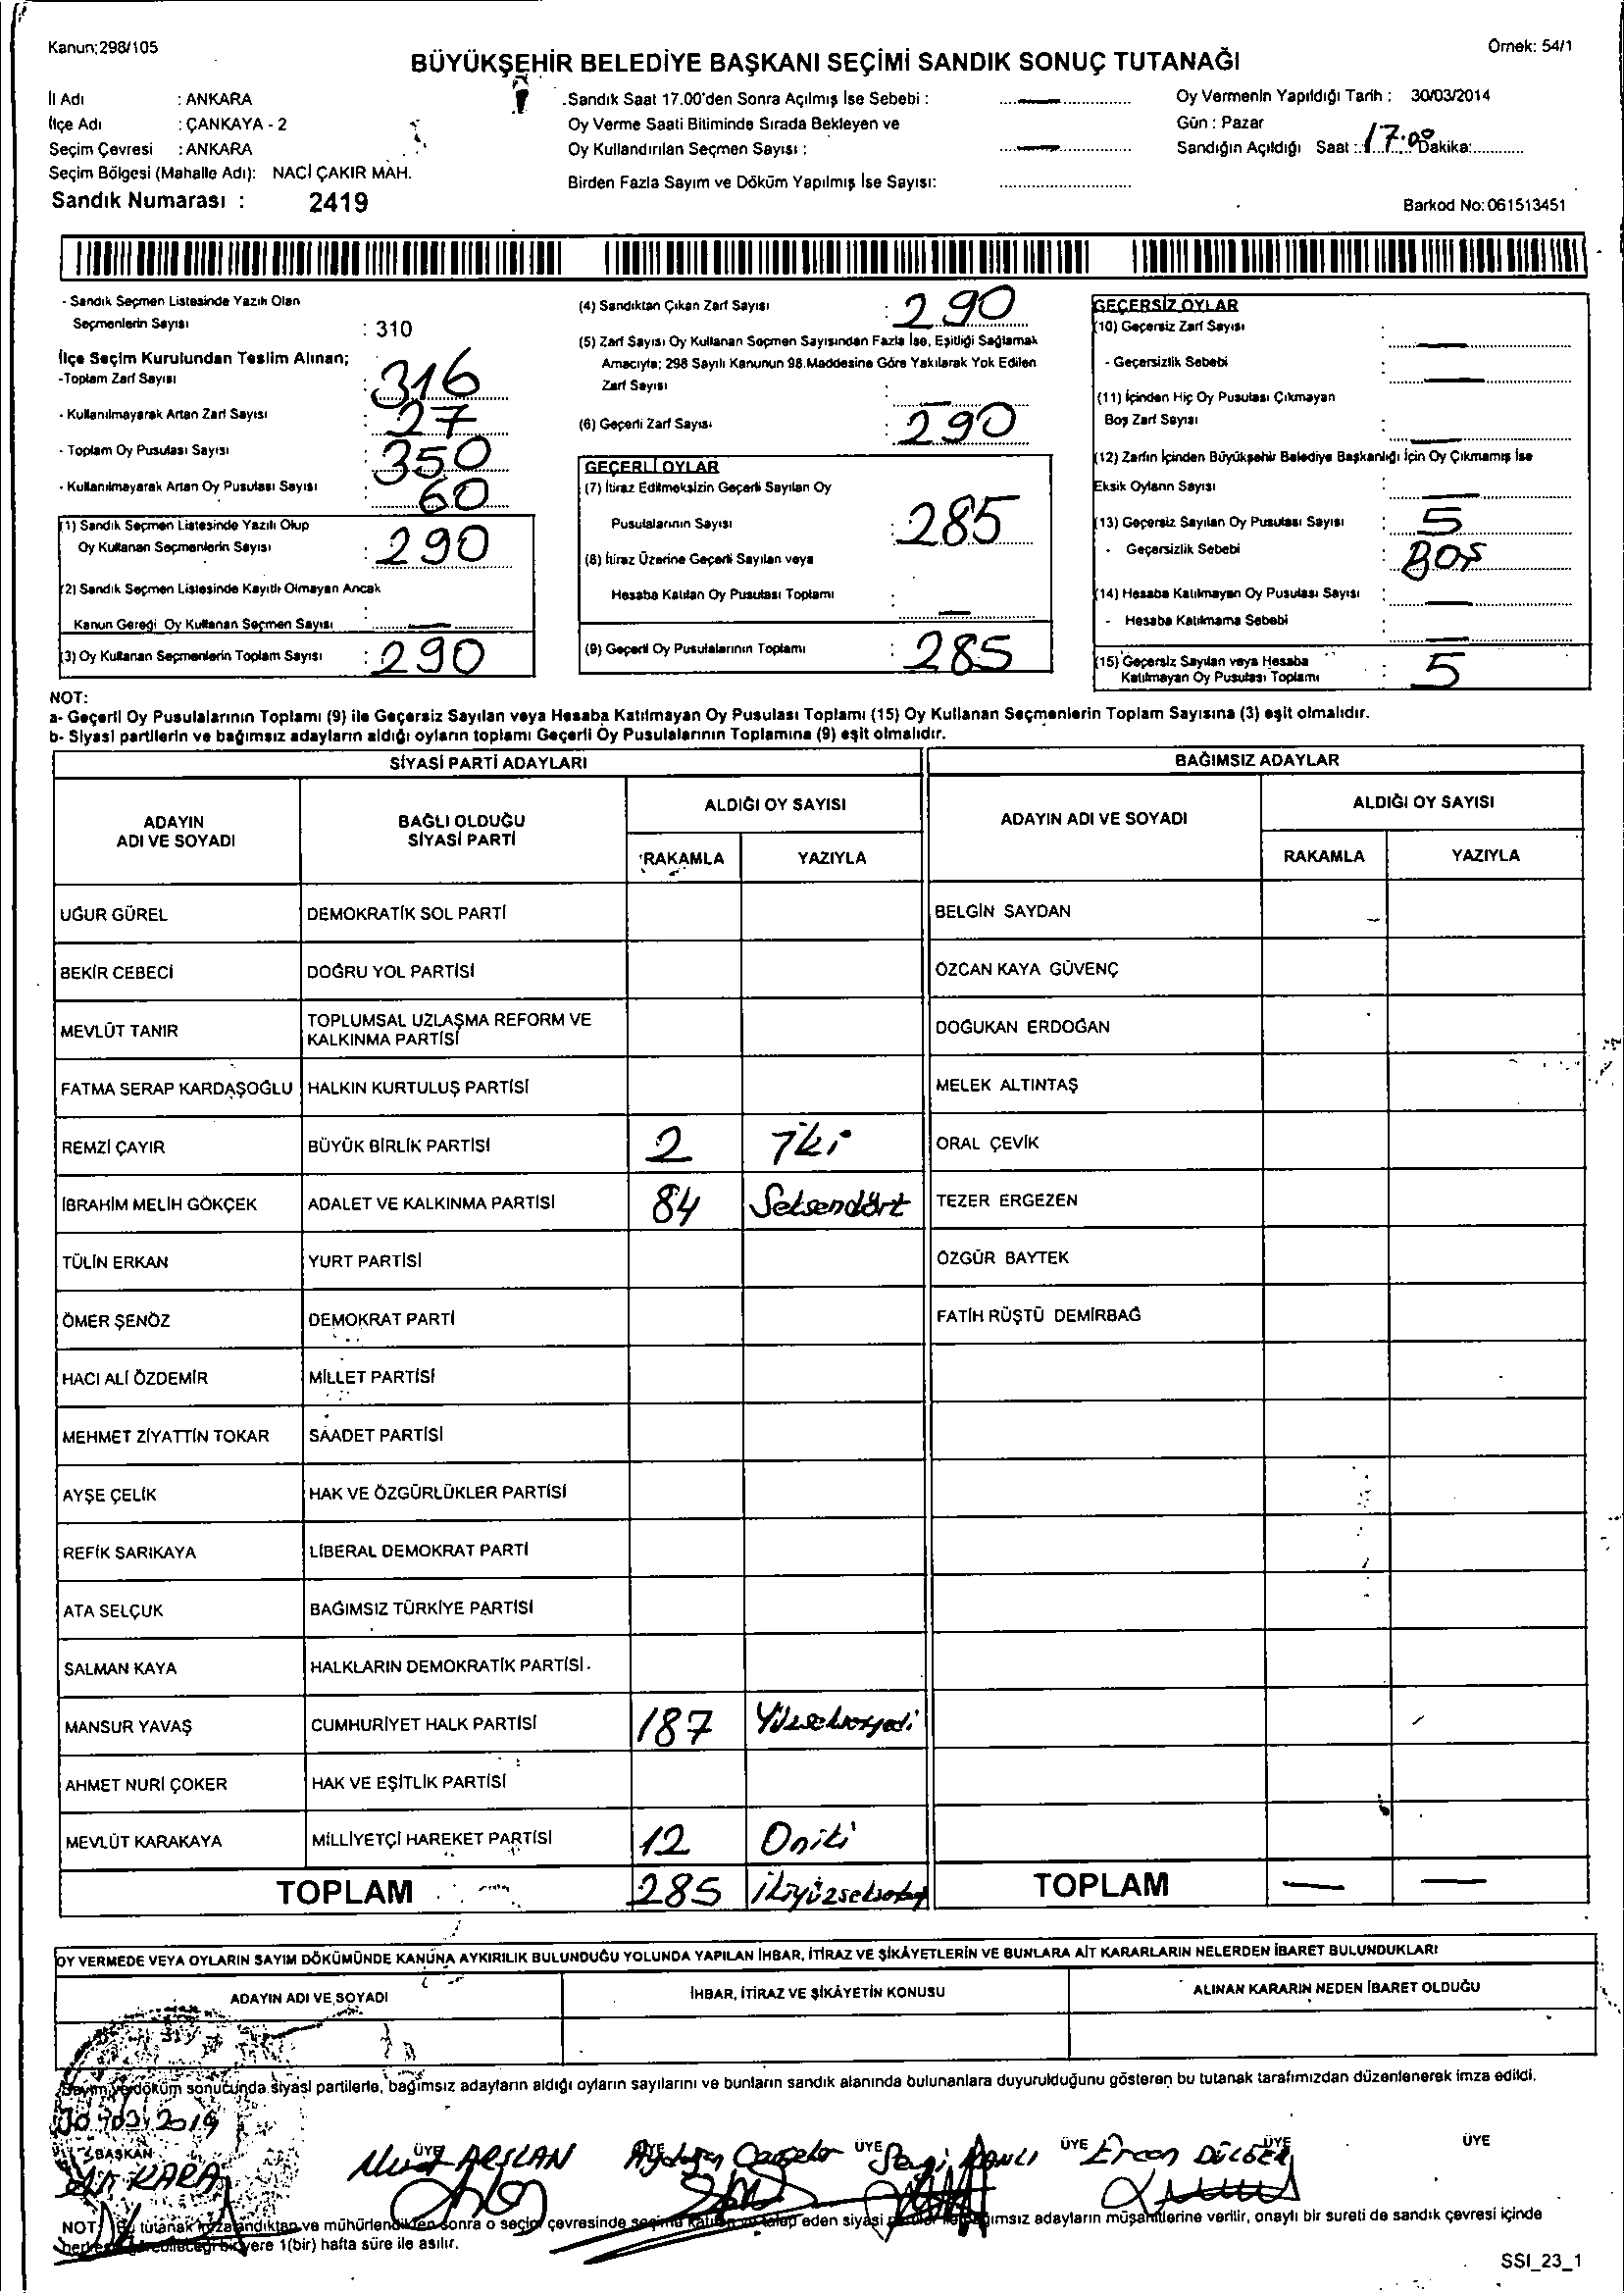 Kanun:298/105
Örnek: 54/1
BÜYÜKŞEHİR BELEDİYE BAŞKANI SEÇİMİ SANDIK SONUÇ TUTANAĞI
İl Adı : ANKARA
İlçe Adı : ÇANKAYA - 2
Seçim Çevresi : ANKARA
Seçim Bölgesi (Mahalle Adı): NACİ ÇAKIR MAH.
Sandık Numarası : 2419
Sandık Saat 17.00'den Sonra Açılmış İse Sebebi : —
Oy Verme Saati Bitiminde Sırada Bekleyen ve
Oy Kullandırılan Seçmen Sayısı : —
Birden Fazla Sayım ve Döküm Yapılmış İse Sayısı:
Oy Vermenin Yapıldığı Tarih : 30/03/2014
Gün : Pazar
Sandığın Açıldığı Saat : 17.00 Dakika:
Barkod No: 061513451
- Sandık Seçmen Listesinde Yazılı Olan
Seçmenlerin Sayısı : 310
İlçe Seçim Kurulundan Teslim Alınan;
-Toplam Zarf Sayısı : 316
- Kullanılmayarak Artan Zarf Sayısı : 27
- Toplam Oy Pusulası Sayısı : 350
- Kullanılmayarak Artan Oy Pusulası Sayısı : 60
(1) Sandık Seçmen Listesinde Yazılı Olup
Oy Kullanan Seçmenlerin Sayısı : 290
(2) Sandık Seçmen Listesinde Kayıtlı Olmayan Ancak
Kanun Gereği Oy Kullanan Seçmen Sayısı : —
(3) Oy Kullanan Seçmenlerin Toplam Sayısı : 290
(4) Sandıktan Çıkan Zarf Sayısı : 290
(5) Zarf Sayısı Oy Kullanan Seçmen Sayısından Fazla İse, Eşitliği Sağlamak
Amacıyla; 298 Sayılı Kanunun 98.Maddesine Göre Yakılarak Yok Edilen
Zarf Sayısı : —
(6) Geçerli Zarf Sayısı : 290
GEÇERLİ OYLAR
(7) İtiraz Edilmeksizin Geçerli Sayılan Oy
Pusulalarının Sayısı : 285
(8) İtiraz Üzerine Geçerli Sayılan veya
Hesaba Katılan Oy Pusulası Toplamı : —
(9) Geçerli Oy Pusulalarının Toplamı : 285
GEÇERSİZ OYLAR
(10) Geçersiz Zarf Sayısı : —
- Geçersizlik Sebebi : —
(11) İçinden Hiç Oy Pusulası Çıkmayan
Boş Zarf Sayısı : —
(12) Zarfın İçinden Büyükşehir Belediye Başkanlığı İçin Oy Çıkmamış İse
Eksik Oyların Sayısı : —
(13) Geçersiz Sayılan Oy Pusulası Sayısı : 5
- Geçersizlik Sebebi : BOŞ
(14) Hesaba Katılmayan Oy Pusulası Sayısı : —
- Hesaba Katılmama Sebebi : —
(15) Geçersiz Sayılan veya Hesaba
Katılmayan Oy Pusulası Toplamı : 5
NOT:
a- Geçerli Oy Pusulalarının Toplamı (9) ile Geçersiz Sayılan veya Hesaba Katılmayan Oy Pusulası Toplamı (15) Oy Kullanan Seçmenlerin Toplam Sayısına (3) eşit olmalıdır.
b- Siyasi partilerin ve bağımsız adayların aldığı oyların toplamı Geçerli Oy Pusulalarının Toplamına (9) eşit olmalıdır.
SİYASİ PARTİ ADAYLARI
ADAYIN ADI VE SOYADI
BAĞLI OLDUĞU SİYASİ PARTİ
ALDIĞI OY SAYISI
RAKAMLA YAZIYLA
UĞUR GÜREL DEMOKRATİK SOL PARTİ
BEKİR CEBECİ DOĞRU YOL PARTİSİ
MEVLÜT TANIR TOPLUMSAL UZLAŞMA REFORM VE
KALKINMA PARTİSİ
FATMA SERAP KARDAŞOĞLU HALKIN KURTULUŞ PARTİSİ
REMZİ ÇAYIR BÜYÜK BİRLİK PARTİSİ 2 İki
İBRAHİM MELİH GÖKÇEK ADALET VE KALKINMA PARTİSİ 84 Seksendört
TÜLİN ERKAN YURT PARTİSİ
ÖMER ŞENÖZ DEMOKRAT PARTİ
HACI ALİ ÖZDEMİR MİLLET PARTİSİ
MEHMET ZİYATTİN TOKAR SAADET PARTİSİ
AYŞE ÇELİK HAK VE ÖZGÜRLÜKLER PARTİSİ
REFİK SARIKAYA LİBERAL DEMOKRAT PARTİ
ATA SELÇUK BAĞIMSIZ TÜRKİYE PARTİSİ
SALMAN KAYA HALKLARIN DEMOKRATİK PARTİSİ
MANSUR YAVAŞ CUMHURİYET HALK PARTİSİ 187
AHMET NURİ ÇOKER HAK VE EŞİTLİK PARTİSİ
MEVLÜT KARAKAYA MİLLİYETÇİ HAREKET PARTİSİ 12 Oniki
TOPLAM 285
BAĞIMSIZ ADAYLAR
ADAYIN ADI VE SOYADI
ALDIĞI OY SAYISI
RAKAMLA YAZIYLA
BELGİN SAYDAN
ÖZCAN KAYA GÜVENÇ
DOĞUKAN ERDOĞAN
MELEK ALTINTAŞ
ORAL ÇEVİK
TEZER ERGEZEN
ÖZGÜR BAYTEK
FATİH RÜŞTÜ DEMİRBAĞ
TOPLAM — —
OY VERMEDE VEYA OYLARIN SAYIM DÖKÜMÜNDE KANUNA AYKIRILIK BULUNDUĞU YOLUNDA YAPILAN İHBAR, İTİRAZ VE ŞİKÂYETLERİN VE BUNLARA AİT KARARLARIN NELERDEN İBARET BULUNDUKLARI
ADAYIN ADI VE SOYADI İHBAR, İTİRAZ VE ŞİKÂYETİN KONUSU ALINAN KARARIN NEDEN İBARET OLDUĞU
Sayım ve döküm sonucunda siyasi partilerle, bağımsız adayların aldığı oyların sayılarını ve bunların sandık alanında bulunanlara duyurulduğunu gösteren bu tutanak tarafımızdan düzenlenerek imza edildi.
BAŞKAN ÜYE ÜYE ÜYE ÜYE ÜYE ÜYE
KARA ARSLAN Ercan
NOT: Bu tutanak imzalandıktan ve mühürlendikten sonra o seçim çevresinde seçime katılan ve talep eden siyasi bağımsız adayların müşahitlerine verilir, onaylı bir sureti de sandık çevresi içinde
bir yere 1(bir) hafta süre ile asılır.
SSI_23_1